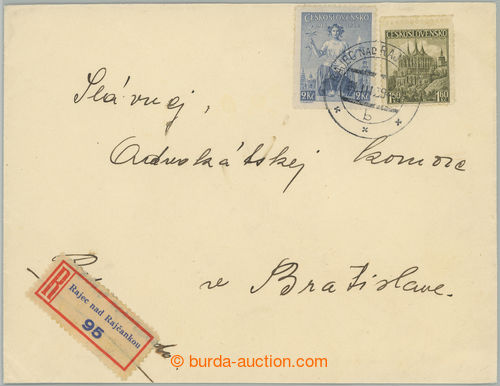 ČESKOSLOVENSKO
ČESKOSLOVENSKO
2Kč 2Kč
1.60 1.60
RAJEC NAD RAJ
b
Slávnej
Advokátskej komore
v Bratislave.
R
Rajec nad Rajčankou
95
© burda-auction.com